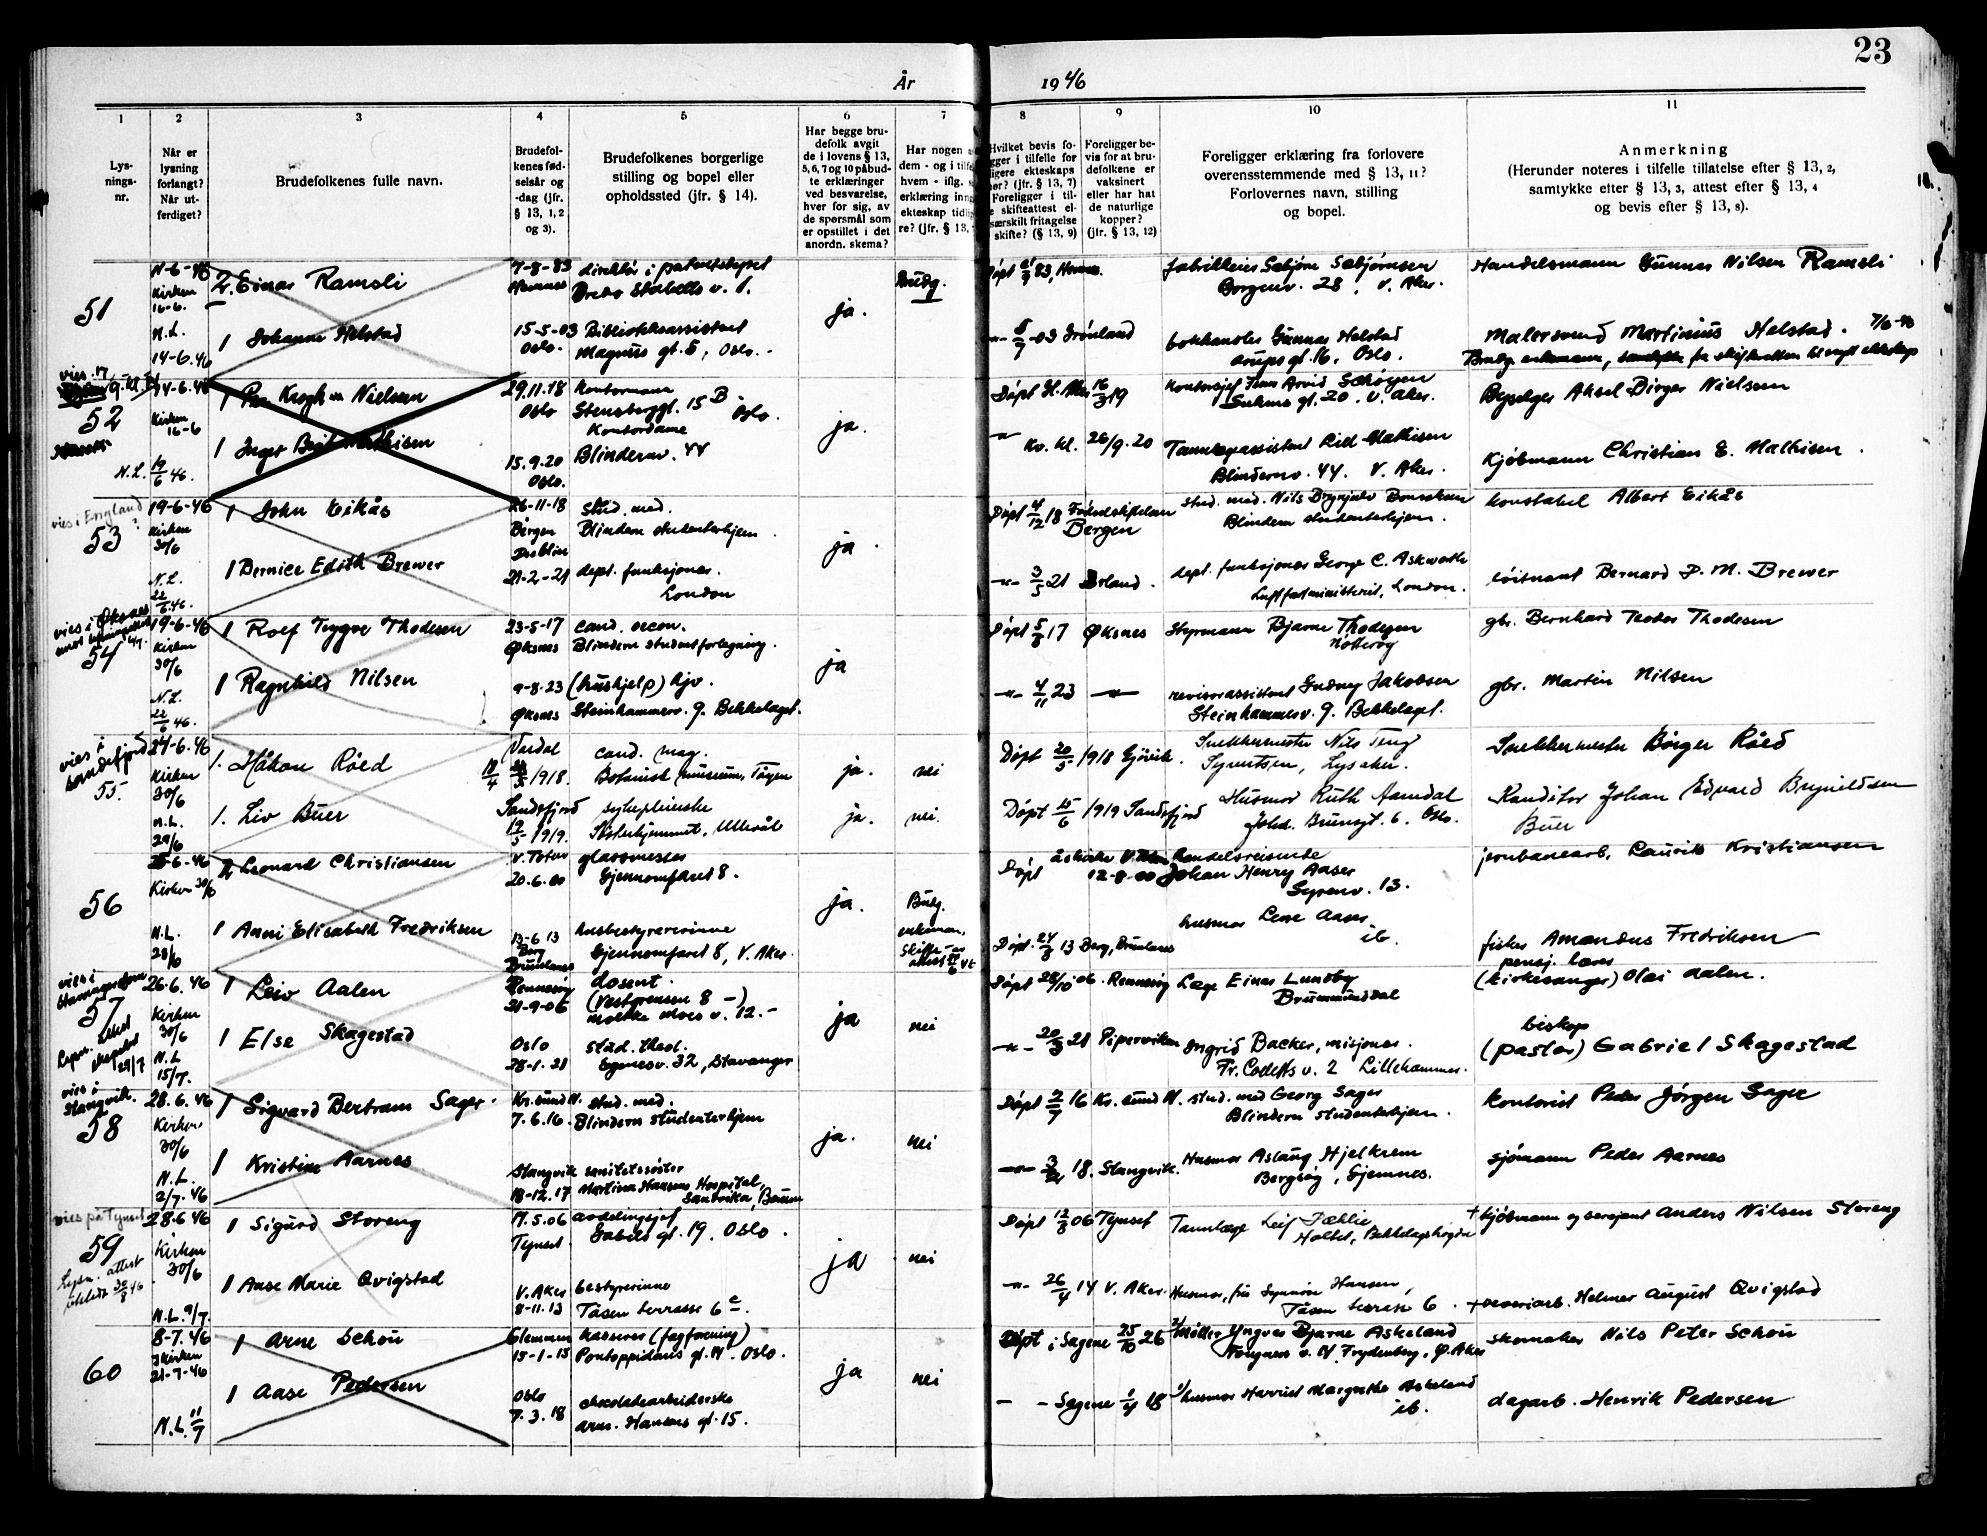 23
År 1946
1
2
3
4
5
6
7
8
9
10
11
Lys-
nings-
nr.
Når er
lysning
forlangt?
Når ut-
ferdiget?
Brudefolkenes fulle navn.
Brudefol-
kenes fød-
selsår og
-dag (jfr.
§ 13, 1, 2
og 3).
Brudefolkenes borgerlige
stilling og bopel eller
opholdssted (jfr. § 14).
Har begge bru-
defolk avgit
de i lovens § 13,
5, 6, 7 og 10 påbud-
te erklæringer
ved besvarelse,
hver for sig, av
de spørsmål som
er opstillet i det
anordn. skema?
Har nogen
dem - og i tilf
hvem - iflg.
erklæring inng
ekteskap tidli
re? (jfr. § 13,
Hvilket bevis fo-
gger i tilfelle for
ligere ekteskaps
ør? (jfr. § 13, 7)
Foreligger i til-
e skifteattest el-
særskilt fritagelse
skifte? (§ 13, 9)
Foreligger be-
vis for at bru-
defolkene er
vaksinert
eller har hat
de naturlige
kopper?
(jfr. § 13, 12)
Foreligger erklæring fra forlovere
overensstemmende med § 13, 11?
Forlovernes navn, stilling
og bopel.
Anmerkning
(Herunder noteres i tilfelle tillatelse efter § 13, 2,
samtykke efter § 13, 3, attest efter § 13, 4
og bevis efter § 13, 8).
51
Kirken
16-6
N.L.
14-6.46
2. Einar Ramsli
7-8-83
direktør i patentstyret
ja.
Brudg.
Borgenv. 28, V. Aker.
Handelsmann Gunnar Nilsen Ramsli
1 Johanne Helstad
15-5-03
Oslo.
Biblioteksassistent
Magnus gt. 5, Oslo.
bokhandler Gunnar Helstad
Malersvend Martinius Helstad.
52
14-6.46
Kirken
16-6
N.L. 19/6 46.
1 Per Krogh Nielsen
29.11.18
Oslo
Kontormann
Stensberggt. 15 B Oslo.
ja.
Døpt 16/3 19
Byselger Aksel Birger Nielsen
1 Inger Mathisen
15.9.20
Oslo.
Kontordame
Blindernv. 44
26/9.20
Blindernv. 44. V. Aker.
Kjøbmann Christian E. Mathisen.
vies i England
?
53
19-6-46
Kirken
30/6
N.L.
22/6.46.
1 John Eikås
26-11-18
Bergen
stud. med.
Blindern studenterhjem.
ja.
Døpt 4/12 18
Bergen
stud. med. Nils Brynjulv
Blindern studenterhjem.
konstabel Albert Eikås
1 Bernice Edith Brewer
Dublin
21-2-21
dept. funksjonær.
London
3/5 21 Irland.
dept. funksjonær George C. Askworth
Luftfartministeriet, London.
løitnant Bernard P. M. Brewer
vies i Øksnes
54
19-6-46
Kirken
30/6
N.L.
22/6 46.
1 Rolf Trygve Thodesen
23-5-17
Øksnes
cand. oecon.
Blindern studentforlegning.
ja
Døpt 5/8 17 Øksnes
Styrmann Bjarne Thodesen
Nøtterøy
gbr. Bernhard Teodor Thodesen
1 Ragnhild Nilsen
9-8-23
Øksnes
(hushjelp) hjv.
Steinhammerv. 9. Bekkelaget.
-"- 4/11 23 -"-
revisorassistent Gudny Jakobsen
Steinhammerv. 9. Bekkelaget.
gbr. Martin Nilsen
vies i
Sandefjord
55.
24-6.46
Kirken
30/6
N.L.
29/6
1. Håkon Røed
Vardal
1918.
cand. mag.
Botanisk museum, Tøyen
ja.
nei
Døpt 20/5 1918 Gjøvik.
Snekkermester Nils Teng
Syvertsen, Lysaker.
Snekkermester Børger Røed
1. Liv Buer
Sandefjord
19/5 1919.
sykepleierske
Søsterhjemmet, Ullevål
ja.
nei.
Døpt 15/6 1919 Sandefjord
Husmor Ruth Aamdal
Johd. Brunsgt. 6. Oslo.
Konditor Johan Edvard Brynildsen
Buer
56
25-6-46
Kirken 30/6
N.L.
28/6
2 Leonard Christiansen
V. Toten
20.6.00
glassmester
Gjennomfaret 8.
ja.
Brudg.
enkemann,
Døpt
12-8-00
handelsreisende
Johan Henry Aaser
Syrenv. 13.
jernbanearb. Laurits Kristiansen
1 Anni Elisabeth Fredriksen
13-6 13
Berg
Brunlanes
husbestyrerinne
Gjennomfaret 8, V. Aker.
Døpt. 24/8 13 Berg, Brunlanes
husmor Lene Aaser
ib.
fisker Amandus Fredriksen
vies i
57
26-6.46
Kirken
30/6
N.L
15/7.
1 Leiv Aalen
Rennesøy
21-9-06
dosent.
(Vestgrensen 8 -)
Moltke Moes v. 12.-
ja
nei
Døpt 28/10 06. Rennesøy
Læge Einar Lundby
Brumunddal
pensj. lærer
(kirkesanger) Olai Aalen.
1 Else Skagestad
Oslo
28-1.21
stud. theol.
Egenesv. 32, Stavanger
-"- 20/3 21 Piperviken
Ingrid Backer, misjonær.
Fr. Colletts v. 2 Lillehammer.
biskop
(pastor) Gabriel Skagestad
vies i
Stangvik.
58
28.6.46
Kirken
30/6
N.L.
2/7.46
1 Sigvard Bertram Sager.
Kr.sund N.
7.6.16.
stud. med.
Blindern studenterhjem
ja.
nei
Døpt 2/7 16 Kr. sund N.
stud. med Georg Sager
Blindern studenterhjem.
kontorist Peder Jørgen Sager
1 Kristine Aarnes
Stangvik
18-12.17
sanitetssøster
Martina Hansens Hospital,
Sandvika, Bærum
18. Stangvik.
Husmor Aslaug Hjelkrem
Bergsøy, Gjemnes.
sjømann Peder Aarnes
vies på Tynset
59
Lysn. attest
30/8 46
28.6 46
Kirken
30/6
N.L. 9/7.
1 Sigurd Storeng
17.5.06
Tynset
avdelingssjef
Gabels gt. 19. Oslo.
ja
nei
Døpt 12/8 06 Tynset
Tannlæge Leif Fæhlie
Holtet, Bekkelagshøgda
+ kjøbmann og sersjant Anders Nilsen Storeng
1 Aase Marie Qvigstad
V. Aker
8-11.13
bestyrerinne
Tåsen terrasse 6 c.
-"- 26/4 14 V. Aker.
Husmor, fru Synnøve Hansen,
Tåsen terrasse 6.
+ Helmer August Qvigstad
60
8-7.46
Kirken
21-7-46
N.L. 11/7
1 Arne Schou
Glemmen
15-1-15
kasserer (fagforening)
Pontoppidans gt. 14. Oslo.
ja
nei
Døpt i Sagene 25/10 26
2/ Møller Yngvar Bjarne Askeland
Frydenberg, Ø. Aker
skomaker Nils Peter Schou
1 Aase Pedersen
Oslo
7.3.18
chocoladearbeiderske
Arm. Hansens gt. 15.
- - Sagene 1/4 18
1/ husmor Harriet Margrethe Askeland
ib.
dagarb. Henrik Pedersen